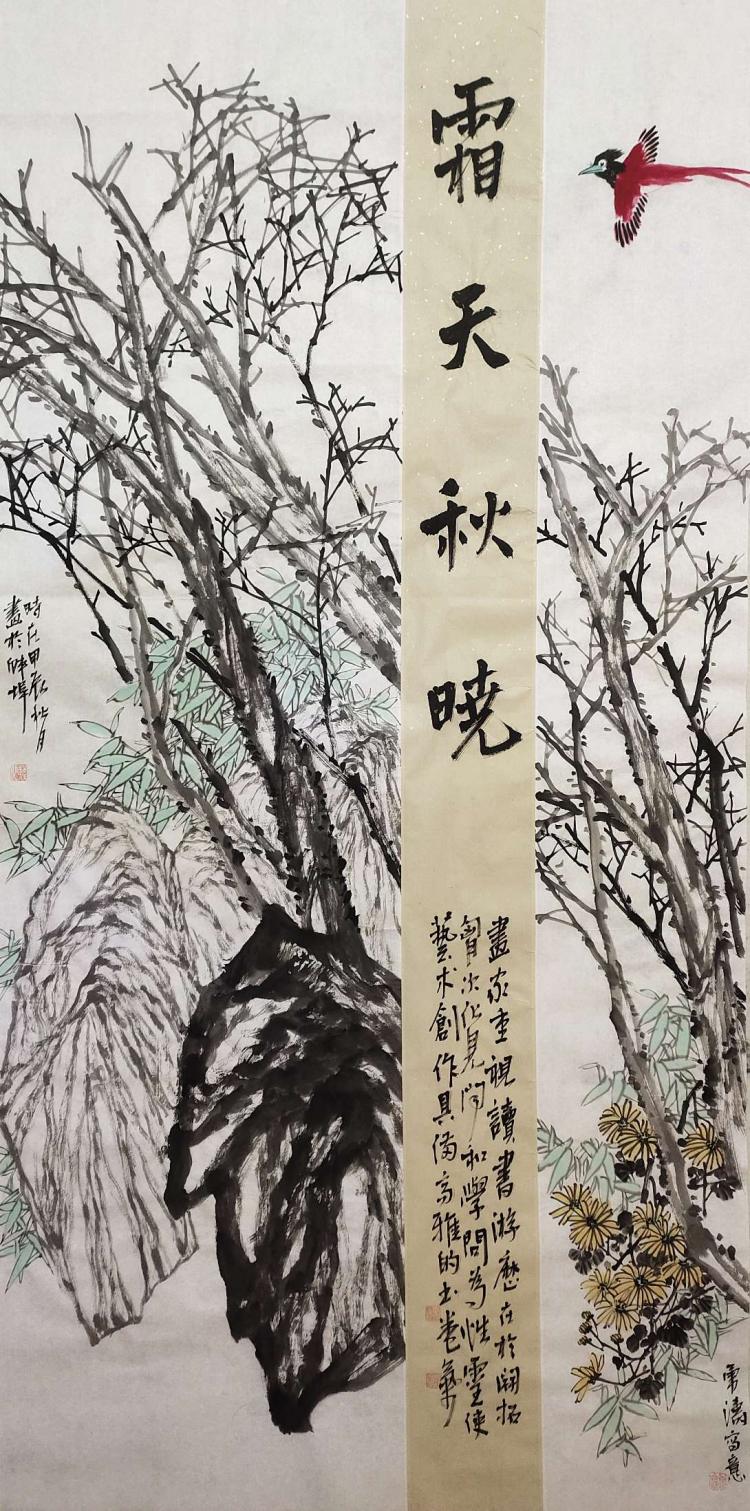 霜天秋曉
畫家重視讀書游歷在於開拓
胷次化見聞和學問為性靈使
藝术創作具備高雅的书卷氣
時在甲辰秋月
畫於蚌埠
雨濤写意